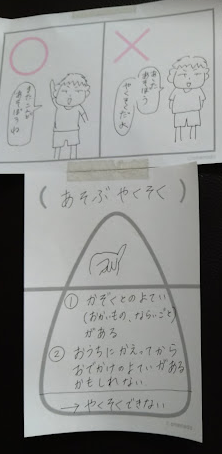 また こんど
あそぼうね
あした
あそぼう
やくそくだよ
( あそぶ やくそく )
① かぞくとのよてい
(おかいもの、ならいごと)
がある
② おうちにかえってから
おでかけのよていがある
かもしれない
→ やくそくできない